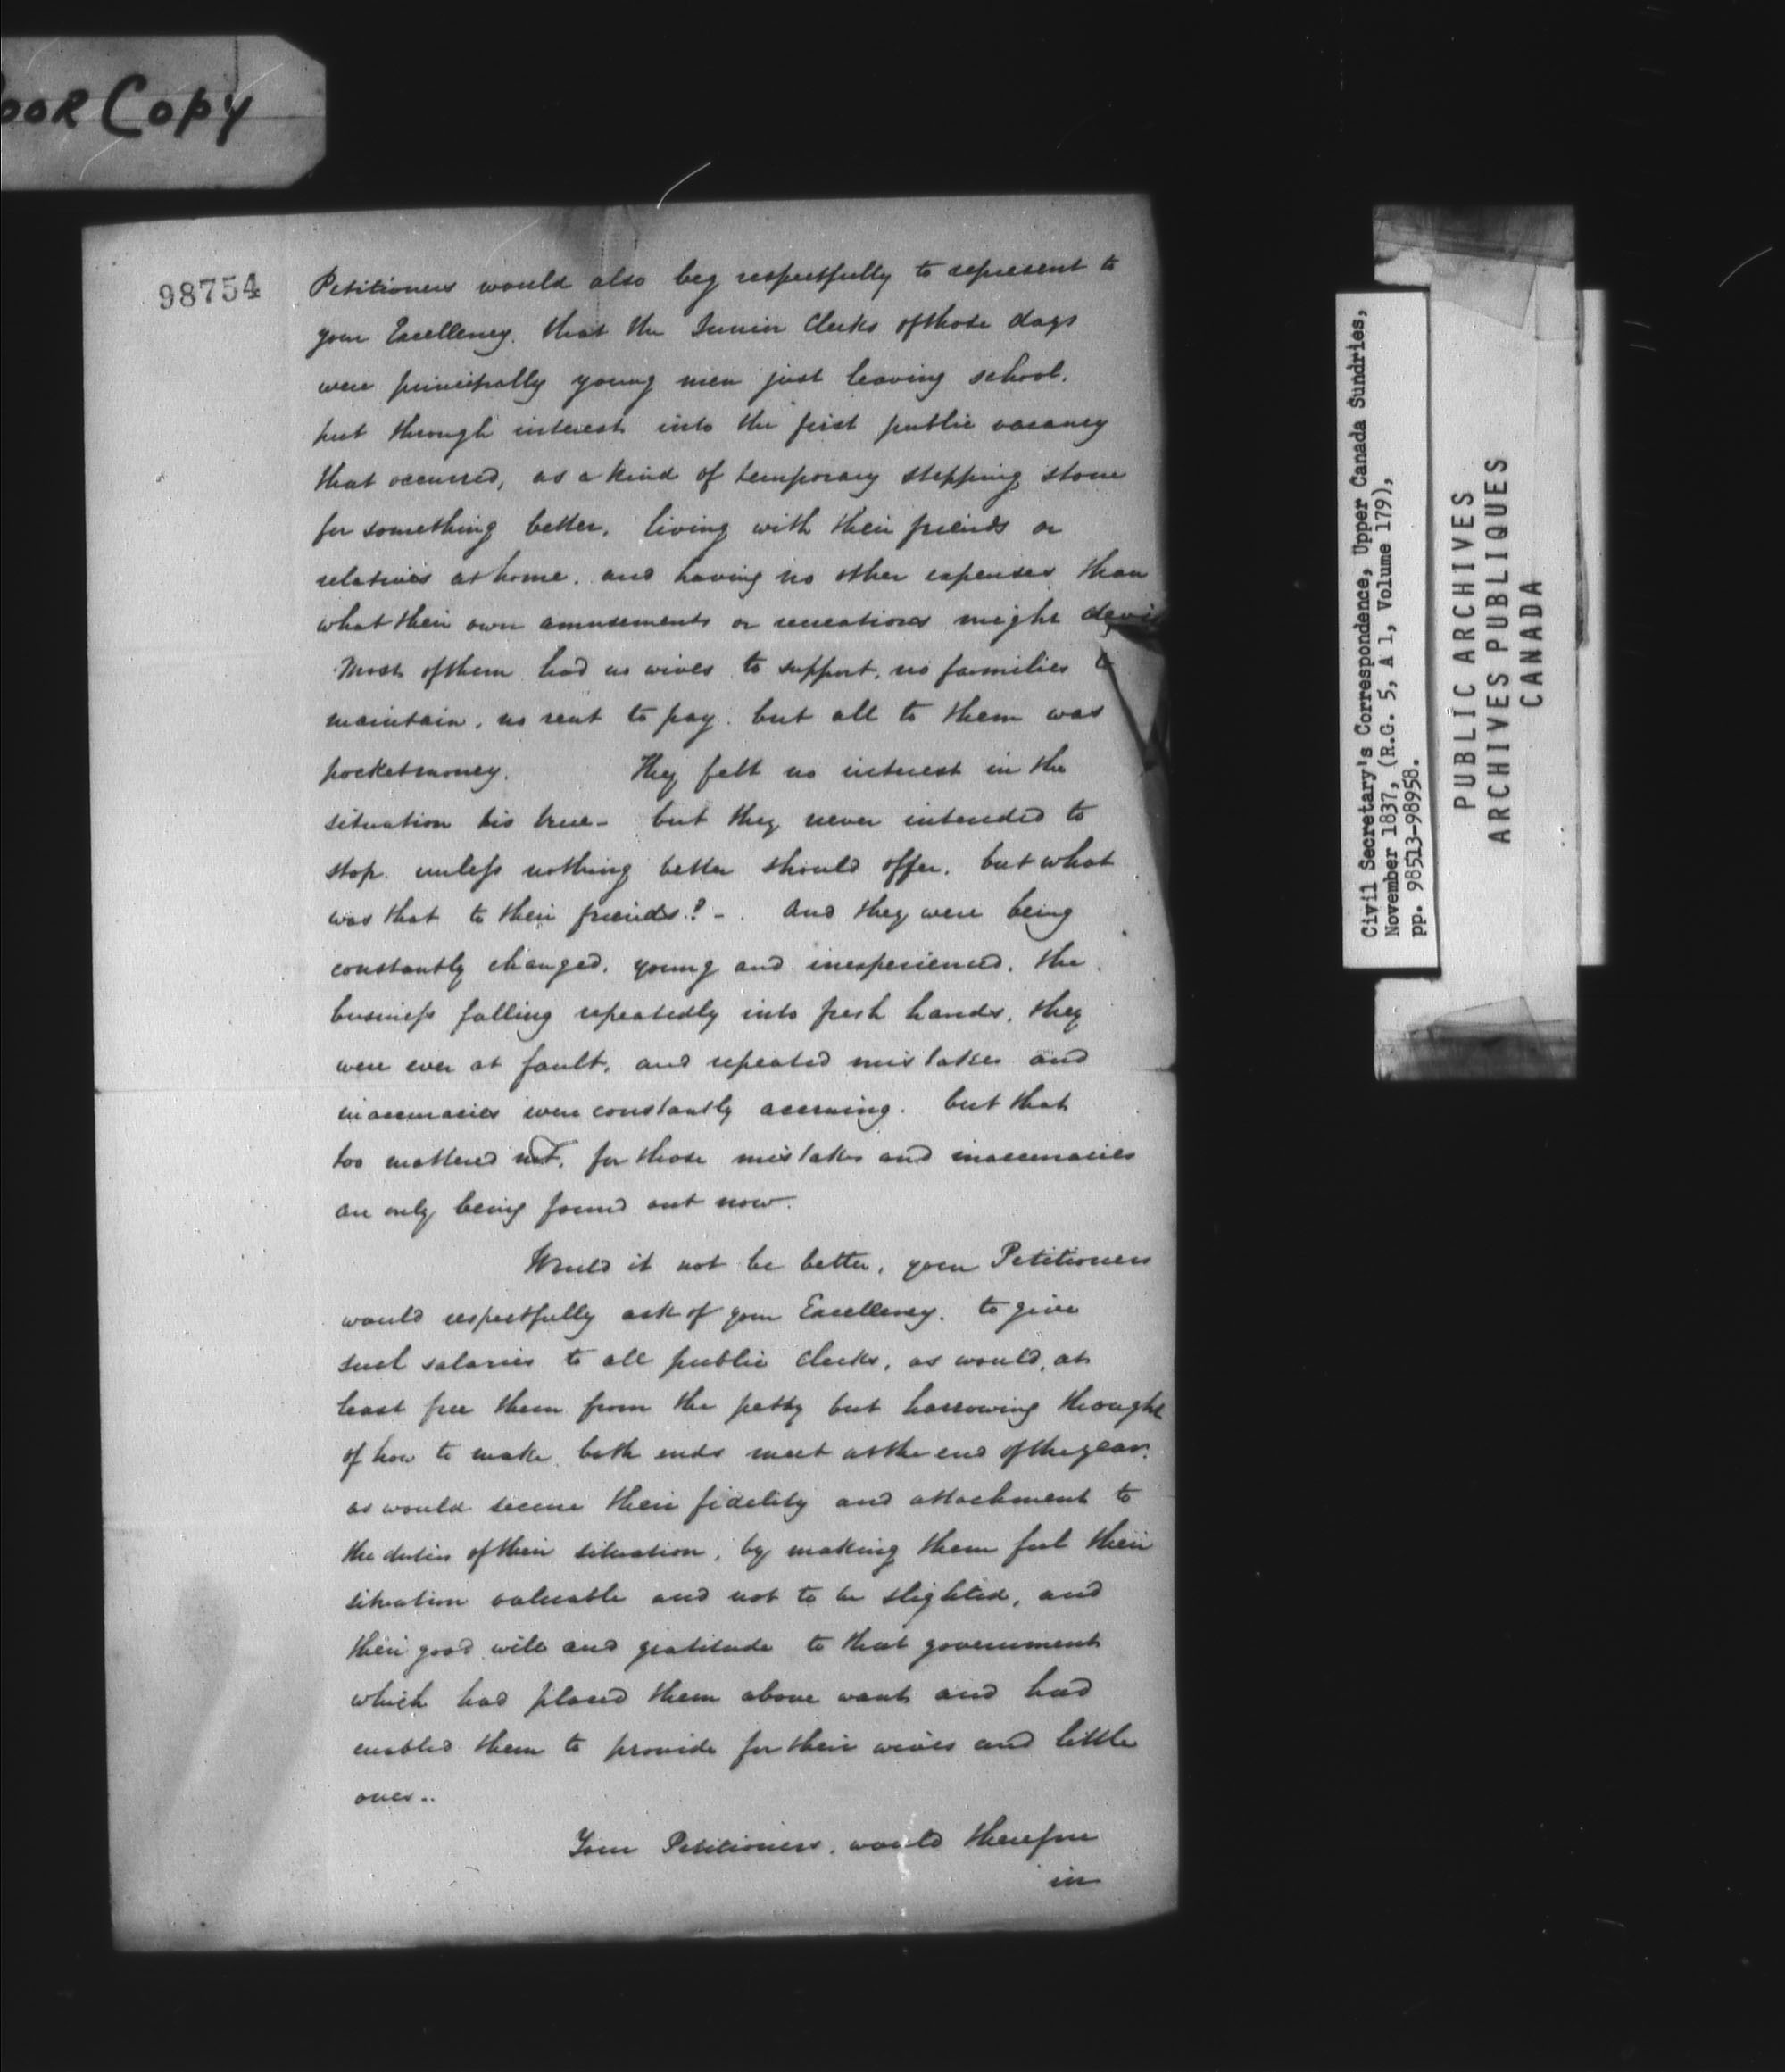 oor Copy
98754
Petitioners would also beg respectfully to represent to
your Excellency. that the Junior Clerks of those days
were principally young men just leaving school.
put through interest into the first public vacancy
that occurred, as a kind of temporary stepping stone
for something better. living with their friends or
relatives at home. and having no other expenses than
what their own amusements or recreations might devis
Most of them had no wives to support, no families to
maintain, no rent to pay. but all to them was
pocketmoney. They felt no interest in the
situation tis true - but they never intended to
stop. unless nothing better should offer. but what
was that to their friends? - . And they were being
constantly changed, young and inexperienced. the
business falling repeatedly into fresh hands, they
were ever at fault, and repeated mistakes and
inaccuracies were constantly accruing. but that
too mattered not, for those mistakes and inaccuracies
are only being found out now.
Would it not be better, your Petitioners
would respectfully ask of your Excellency. to give
such salaries to all public clerks, as would, at
least free them from the petty but harrowing thought
of how to make both ends meet at the end of the year.
as would secure their fidelity and attachment to
the duties of their situation, by making them feel their
situation valuable and not to be slighted, and
their good will and gratitude to that government
which had placed them above want and had
enabled them to provide for their wives and little
ones..
Your Petitioners, would therefore
in
Civil Secretary's Correspondence, Upper Canada Sundries,
November 1837, (R.G. 5, A 1, Volume 179),
pp. 98513-98958.
PUBLIC ARCHIVES
ARCHIVES PUBLIQUES
CANADA